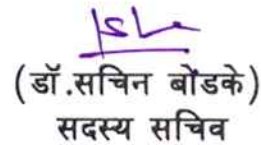 (डॉ.सचिन बोंडके)
सदस्य सचिव